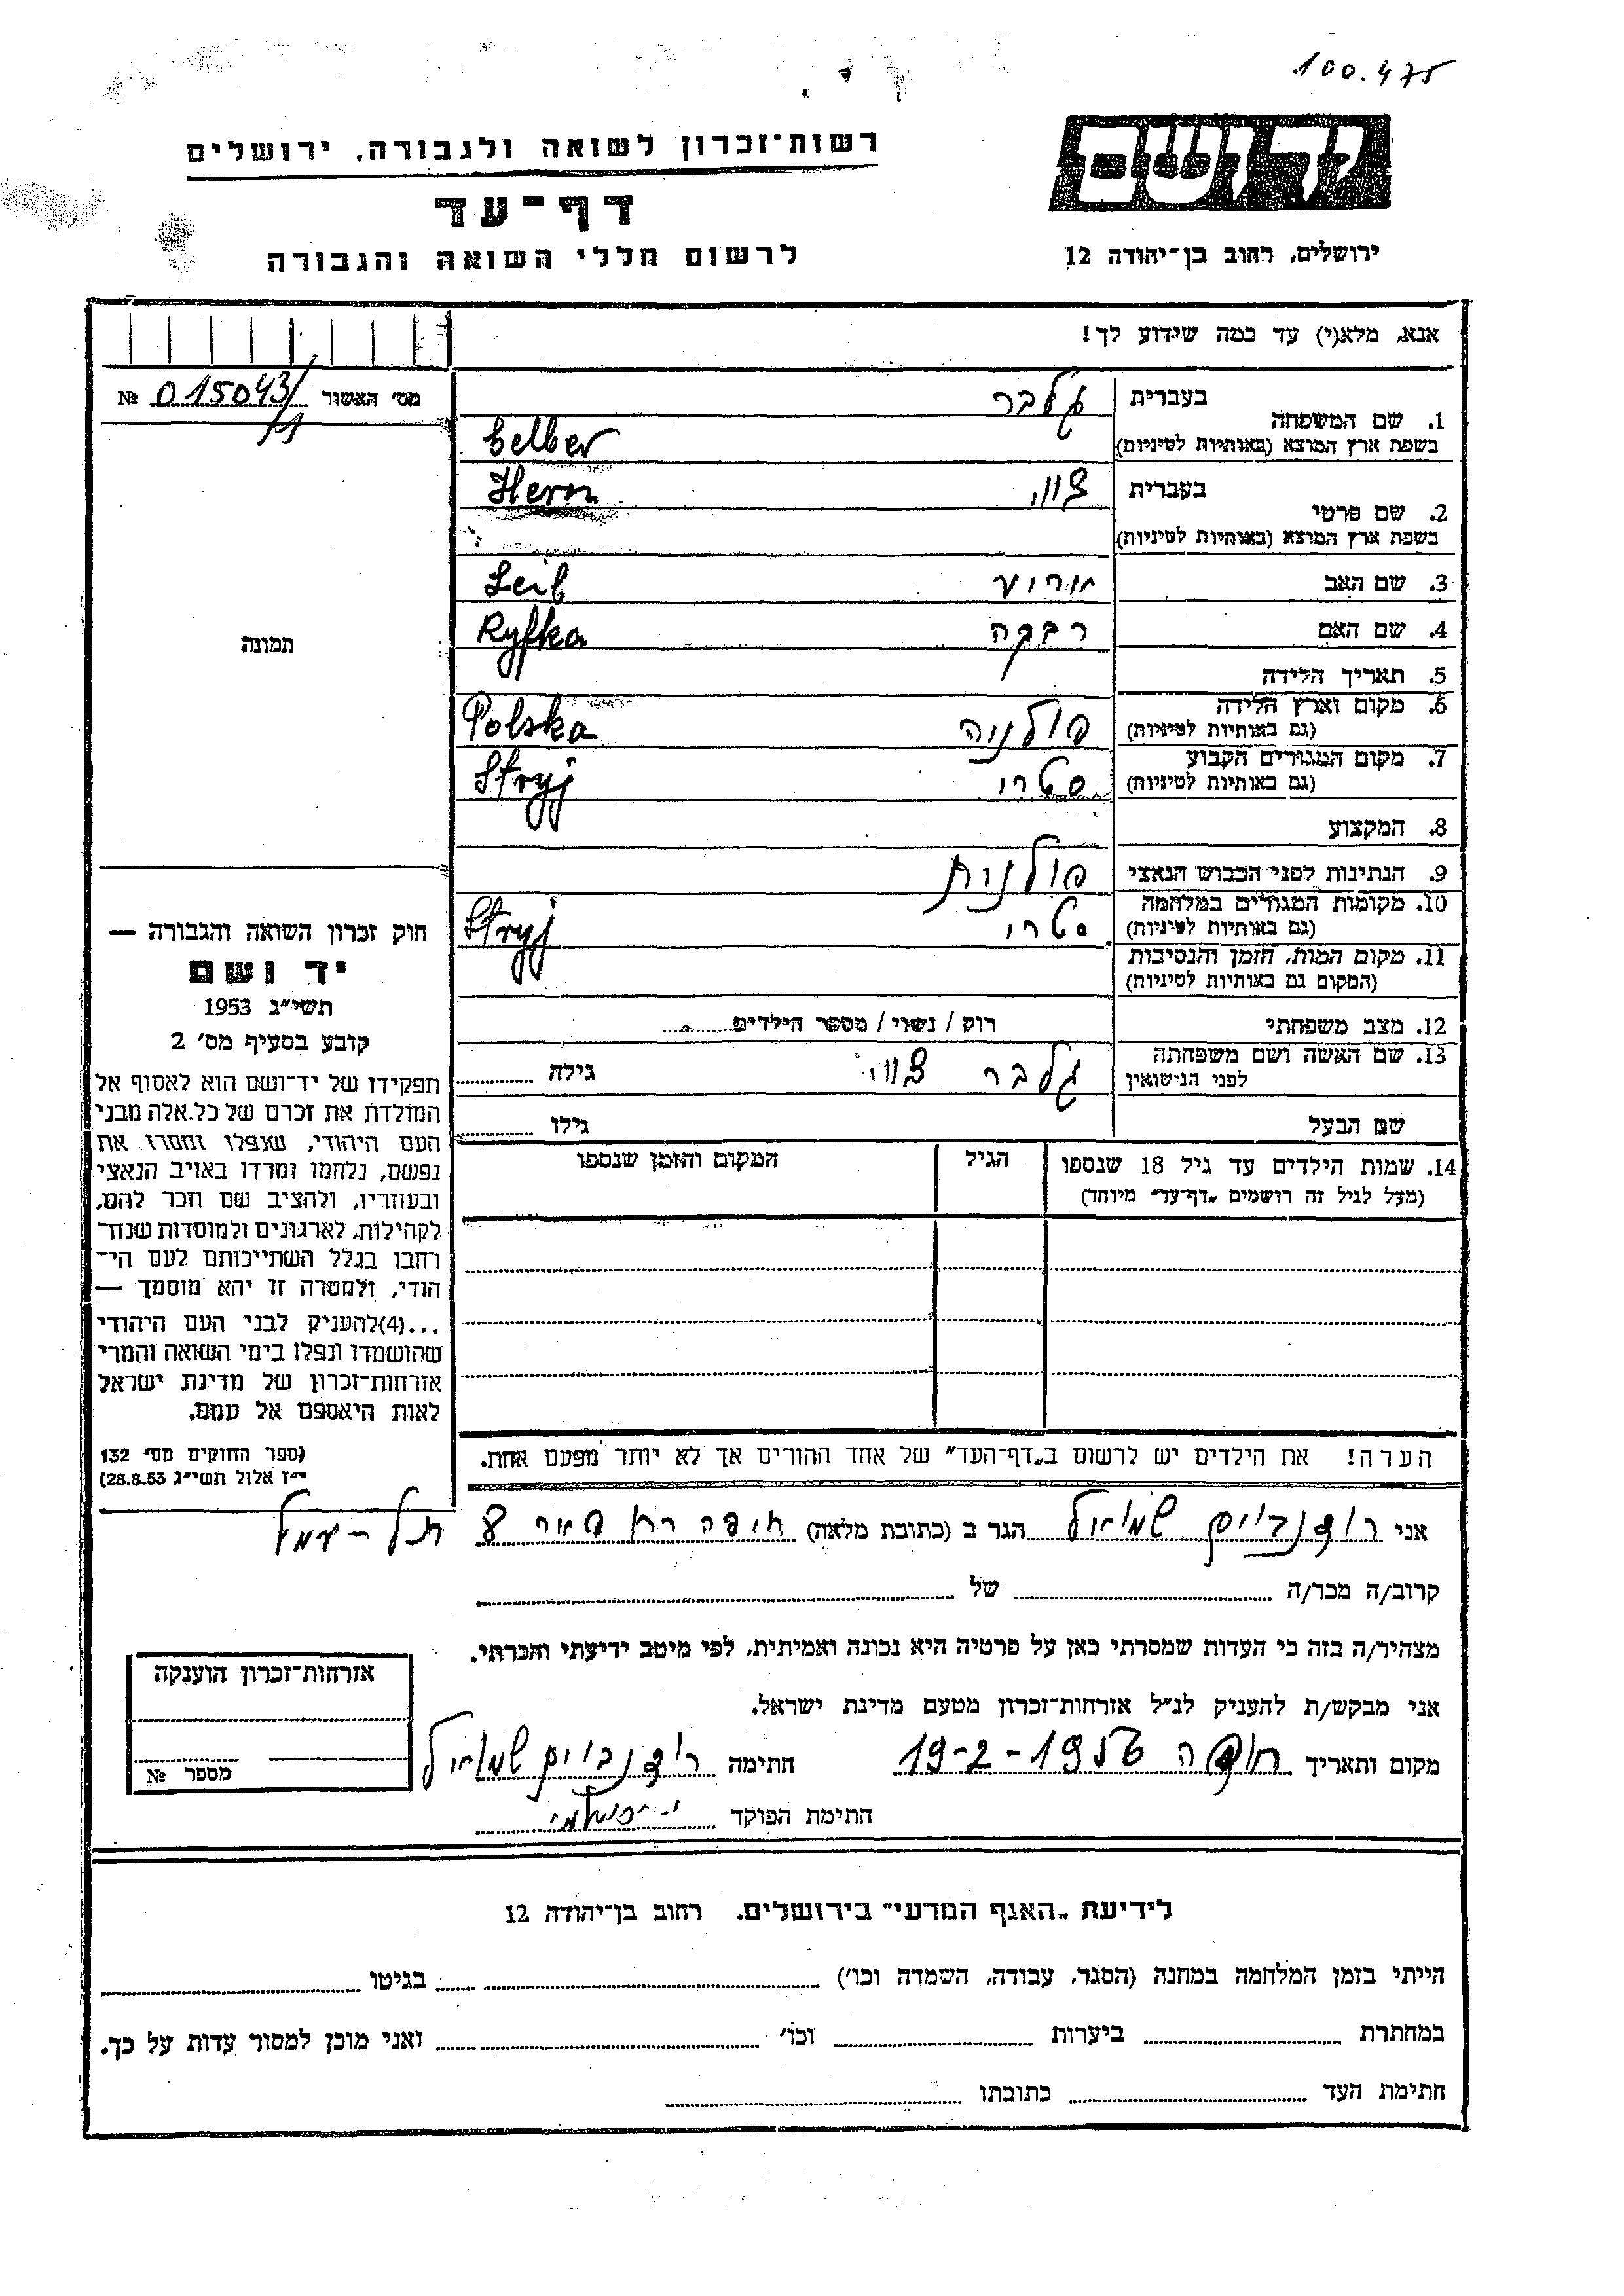 100.475
רשות־זכרון לשואה ולגבורה. ירושלים
דף־עד
לרשום חללי השואה והגבורה
ידושם
ירושלים, רחוב בן־יהודה 12
אנא, מלא(י) עד כמה שידוע לך!
מס׳ האשור 015043/ №
1. שם המשפחה בעברית גלבר
בשפת ארץ המוצא (באותיות לטיניות) Gelber
2. שם פרטי בעברית Hern
בשפת ארץ המוצא (באותיות לטיניות)
3. שם האב Leib
4. שם האם רבקה Ryfka
5. תאריך הלידה
6. מקום וארץ הלידה פולניה Polska
(גם באותיות לטיניות)
7. מקום המגורים הקבוע סטרי Stryj
(גם באותיות לטיניות)
8. המקצוע
9. הנתינות לפני הכבוש הנאצי פולנית
10. מקומות המגורים במלחמה סטרי Stryj
(גם באותיות לטיניות)
11. מקום המות, הזמן והנסיבות
(המקום גם באותיות לטיניות)
12. מצב משפחתי רוק / נשוי / מספר הילדים
13. שם האשה ושם משפחתה גלבר גילה
לפני הנישואין
שם הבעל גילו
14. שמות הילדים עד גיל 18 שנספו הגיל המקום והזמן שנספו
(מעל לגיל זה רושמים „דף־עד״ מיוחד)
הערה! את הילדים יש לרשום ב„דף־העד״ של אחד ההורים אך לא יותר מפעם אחת.
תמונה
חוק זכרון השואה והגבורה —
יד ושם
תשי״ג 1953
קובע בסעיף מס׳ 2
תפקידו של יד־ושם הוא לאסוף אל
המולדת את זכרם של כל אלה מבני
העם היהודי, שנפלו ומסרו את
נפשם, נלחמו ומרדו באויב הנאצי
ובעוזריו, ולהציב שם וזכר להם,
לקהילות, לארגונים ולמוסדות שנח־
רחבו בגלל השתייכותם לעם הי־
הודי, ולמטרה זו יהא מוסמך —
...(4)להעניק לבני העם היהודי
שהושמדו ונפלו בימי השואה והמרי
אזרחות־זכרון של מדינת ישראל
לאות היאספם אל עמם.
(ספר החוקים מס׳ 132
י״ז אלול תשי״ג 28.8.53)
אני שמואל הגר ב (כתובת מלאה) חיפה 8 תל-עמל
קרוב/ה מכר/ה של
מצהיר/ה בזה כי העדות שמסרתי כאן על פרטיה היא נכונה ואמיתית, לפי מיטב ידיעתי והכרתי.
אני מבקש/ת להעניק לנ״ל אזרחות־זכרון מטעם מדינת ישראל.
מקום ותאריך חיפה 19-2-1956 חתימה שמואל
חתימת הפוקד
אזרחות־זכרון הוענקה
מספר №
לידיעת „האגף המדעי״ בירושלים. רחוב בן־יהודה 12
הייתי בזמן המלחמה במחנה (הסגר, עבודה, השמדה וכו׳) בגיטו
במחתרת ביערות וכו׳ ואני מוכן למסור עדות על כך.
חתימת העד כתובתו